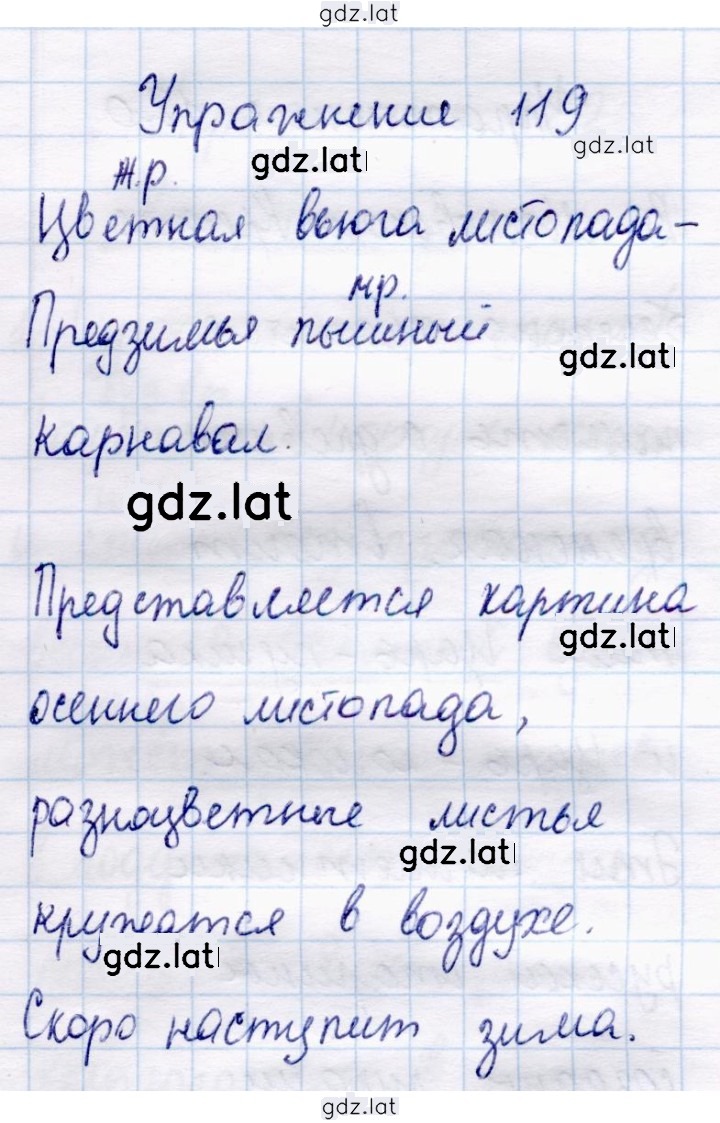 gdz.lat
Упражнение 119
gdz.lat
gdz.lat
ж.р.
Цветная вьюга листопада –
м.р.
Предзимья пышный
gdz.lat
карнавал.
gdz.lat
Представляется картина
gdz.lat
осеннего листопада,
разноцветные листья
gdz.lat
кружатся в воздухе.
gdz.lat
Скоро наступит зима.
gdz.lat